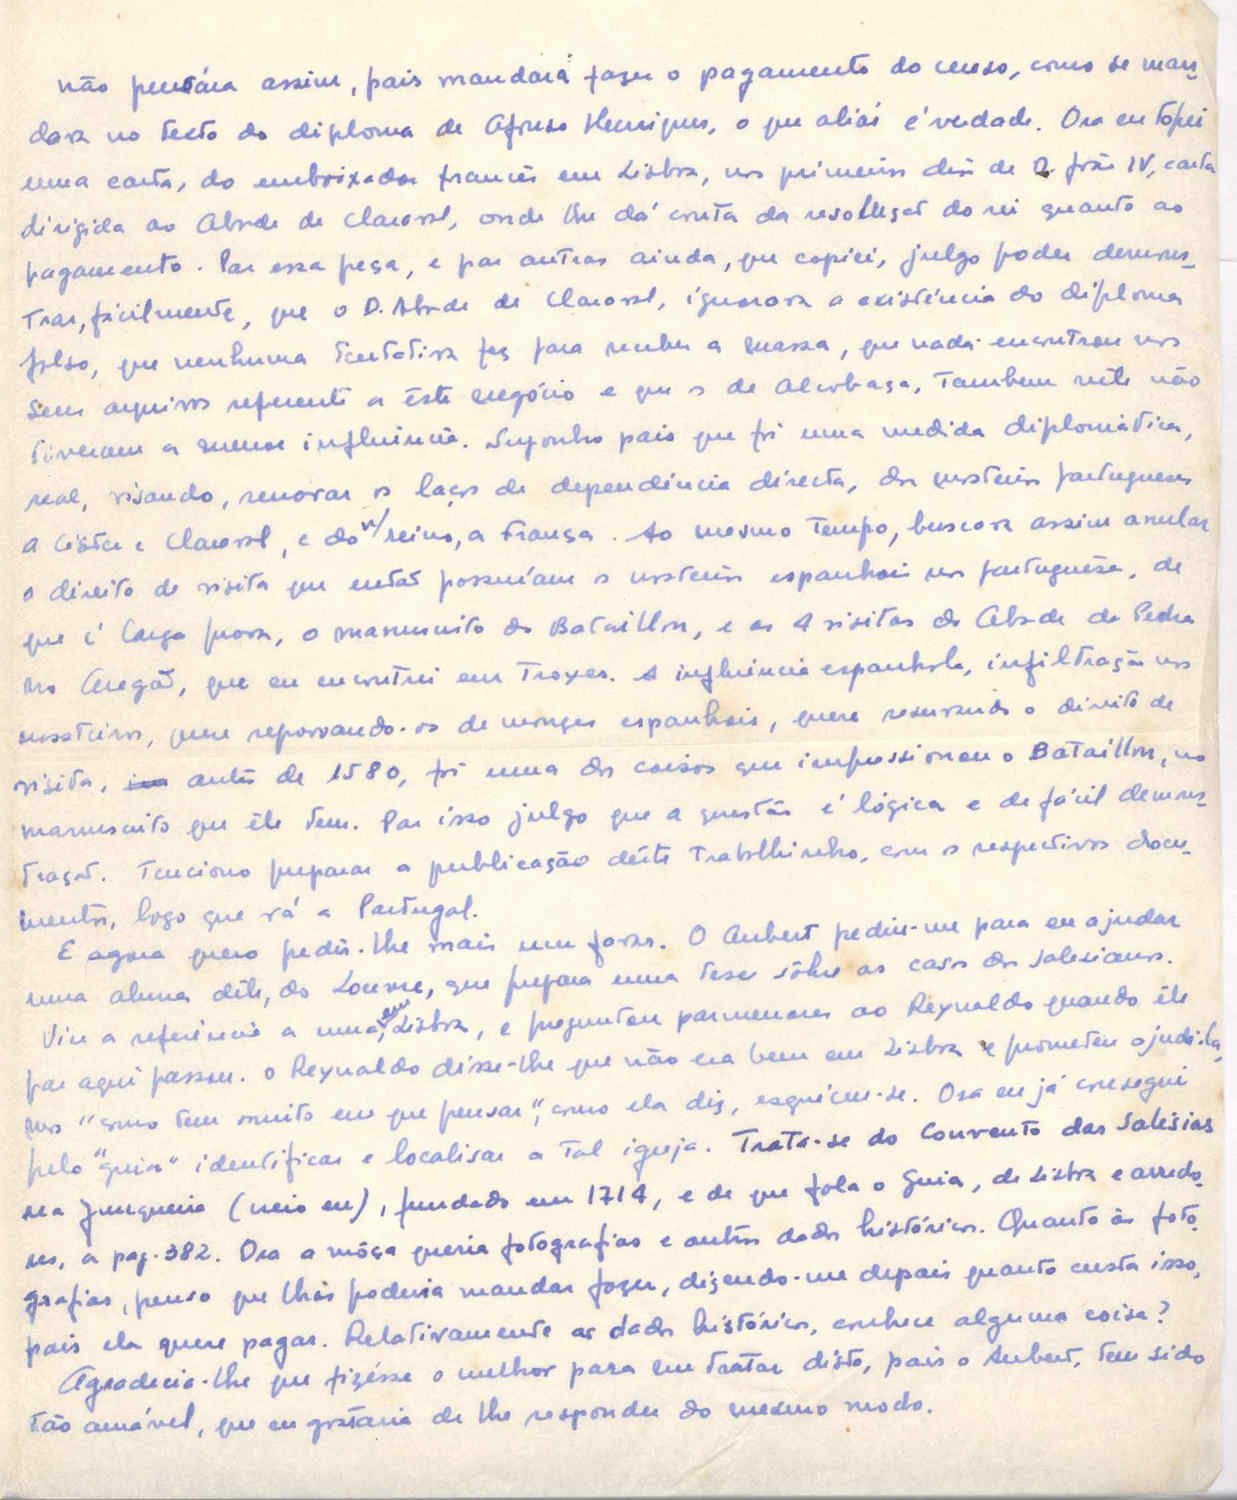 não pensára assim, pois mandará fazer o pagamento do censo, como se man-
dara no texto do diploma de Afonso Henriques, o que aliás é verdade. Ora eu topei
uma carta, do embaixador francês em Lisboa, nos primeiros dias de D. João IV, carta
dirigida ao Abade de Claraval, onde lhe dá conta da resolução do rei quanto ao
pagamento. Por essa peça, e por outras ainda, que copiei, julgo poder demons-
trar, fàcilmente, que o D. Abade de Claraval, ignorava a existência do diploma
falso, que nenhuma tentativa fez para receber a massa, que nada encontrou nos
seus arquivos referente a êste negócio e que os de Alcobaça, tambem nele não
tiveram a menor influência. Suponho pois que foi uma medida diplomática,
real, visando, renovar os laços de dependência directa, dos mosteiros portugueses
a Cister e Claraval, e do n/ reino, a França. Ao mesmo tempo, buscava assim anular
o direito de visita que então possuíam os mosteiros espanhois nos portuguêses, de
que é larga prova, o manuscrito do Bataillon, e as 4 visitas do Abade de Piedra
no Aragão, que eu encontrei em Troyes. A influência espanhola, infiltração nos
mosteiros, quere repovoando-os de monges espanhois, quere reservando o direito de
visita, antes de 1580, foi uma das coisas que impressionou o Bataillon, no
manuscrito que êle tem. Por isso julgo que a questão é lógica e de fácil demons-
tração. Tenciono preparar a publicação dêste trabalhinho, com os respectivos docu-
mentos, logo que vá a Portugal.
E agora quero pedir-lhe mais um favor. O Aubert pediu-me para eu ajudar
uma aluna dêle, do Louvre, que prepara uma tese sôbre as casas dos Salesianos.
Viu a referência a uma, em Lisboa, e preguntou pormenores ao Reynaldo quando êle
por aqui passou. O Reynaldo disse-lhe que não era bem em Lisboa e prometeu ajudá-la,
mas "como tem muito em que pensar", como ela diz, esqueceu-se. Ora eu já consegui
pelo "guia" identificar e localisar a tal igreja. Trata-se do Convento das Salésias
na Junqueira (creio eu), fundado em 1714, e de que fala o Guia, de Lisboa e arredo-
res, a pag. 382. Ora a môça queria fotografias e outros dados históricos. Quanto às foto-
grafias, penso que lhas poderia mandar fazer, dizendo-me depois quanto custa isso,
pois ela quere pagar. Relativamente aos dados históricos, conhece alguma coisa?
Agradecia-lhe que fizésse o melhor para em tratar disto, pois o Aubert, tem sido
tão amável, que eu gostaria de lhe responder do mesmo modo.